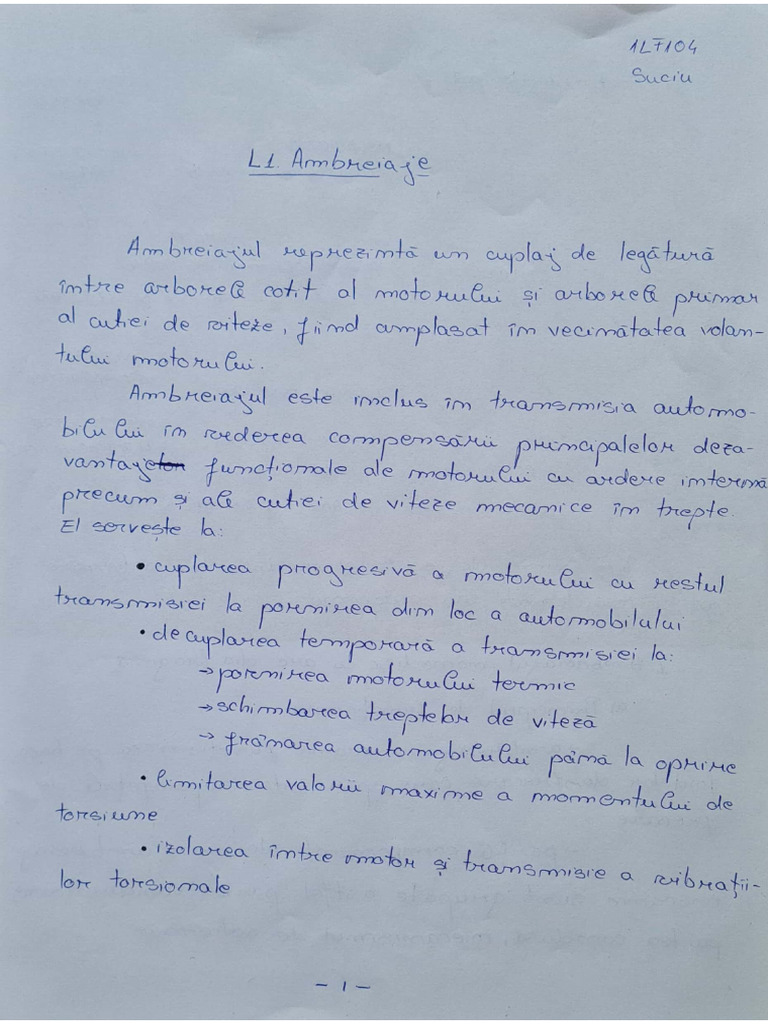 1LF104
Suciu
L1. Ambreiaje
Ambreiajul reprezintă un cuplaj de legătură
între arborele cotit al motorului și arborele primar
al cutiei de viteze, fiind amplasat în vecinătatea volan-
tului motorului.
Ambreiajul este inclus în transmisia automo-
bilului în vederea compensării principalelor deza-
vantaje funcționale ale motorului cu ardere internă
precum și ale cutiei de viteze mecanice în trepte.
El servește la:
• cuplarea progresivă a motorului cu restul
transmisiei la pornirea din loc a automobilului
• decuplarea temporară a transmisiei la:
→ pornirea motorului termic
→ schimbarea treptelor de viteză
→ frânarea automobilului până la oprire
• limitarea valorii maxime a momentului de
torsiune
• izolarea între motor și transmisie a vibrații-
lor torsionale
- 1 -